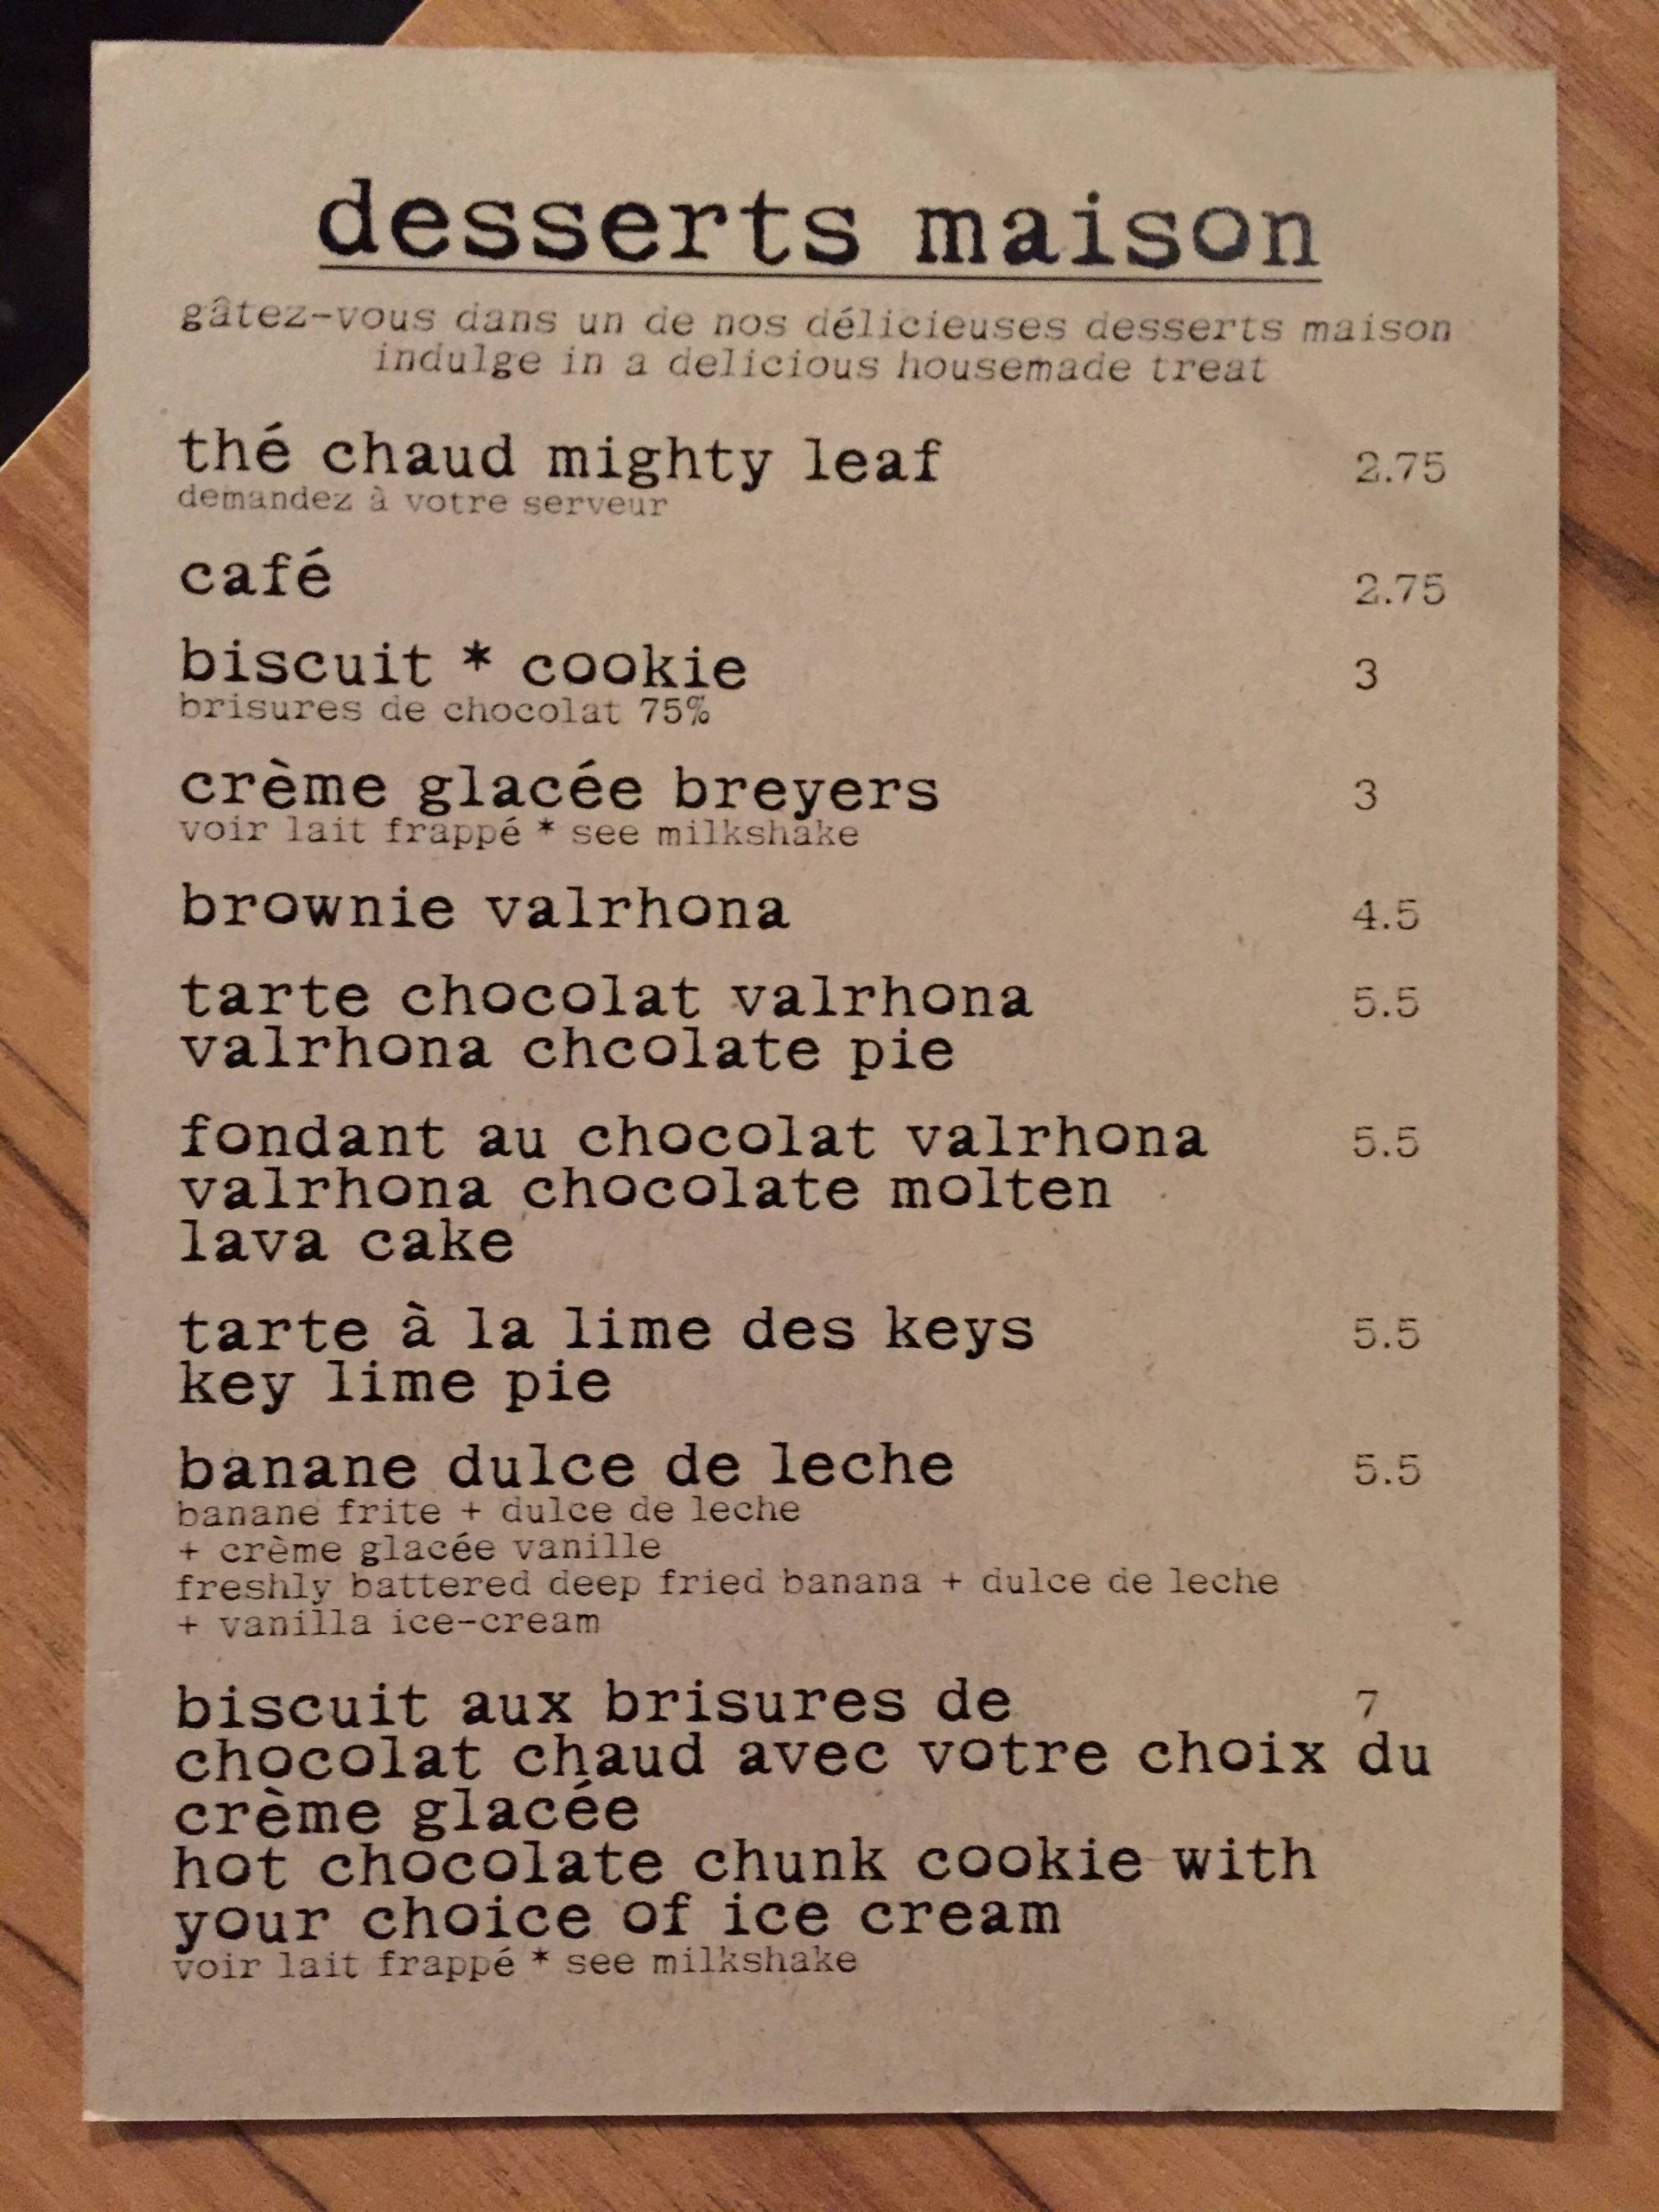 desserts maison
gâtez-vous dans un de nos délicieuses desserts maison
indulge in a delicious housemade treat
thé chaud mighty leaf 2.75
demandez à votre serveur
café 2.75
biscuit * cookie 3
brisures de chocolat 75%
crème glacée breyers 3
voir lait frappé * see milkshake
brownie valrhona 4.5
tarte chocolat valrhona 5.5
valrhona chcolate pie
fondant au chocolat valrhona 5.5
valrhona chocolate molten
lava cake
tarte à la lime des keys 5.5
key lime pie
banane dulce de leche 5.5
banane frite + dulce de leche
+ crème glacée vanille
freshly battered deep fried banana + dulce de leche
+ vanilla ice-cream
biscuit aux brisures de 7
chocolat chaud avec votre choix du
crème glacée
hot chocolate chunk cookie with
your choice of ice cream
voir lait frappé * see milkshake